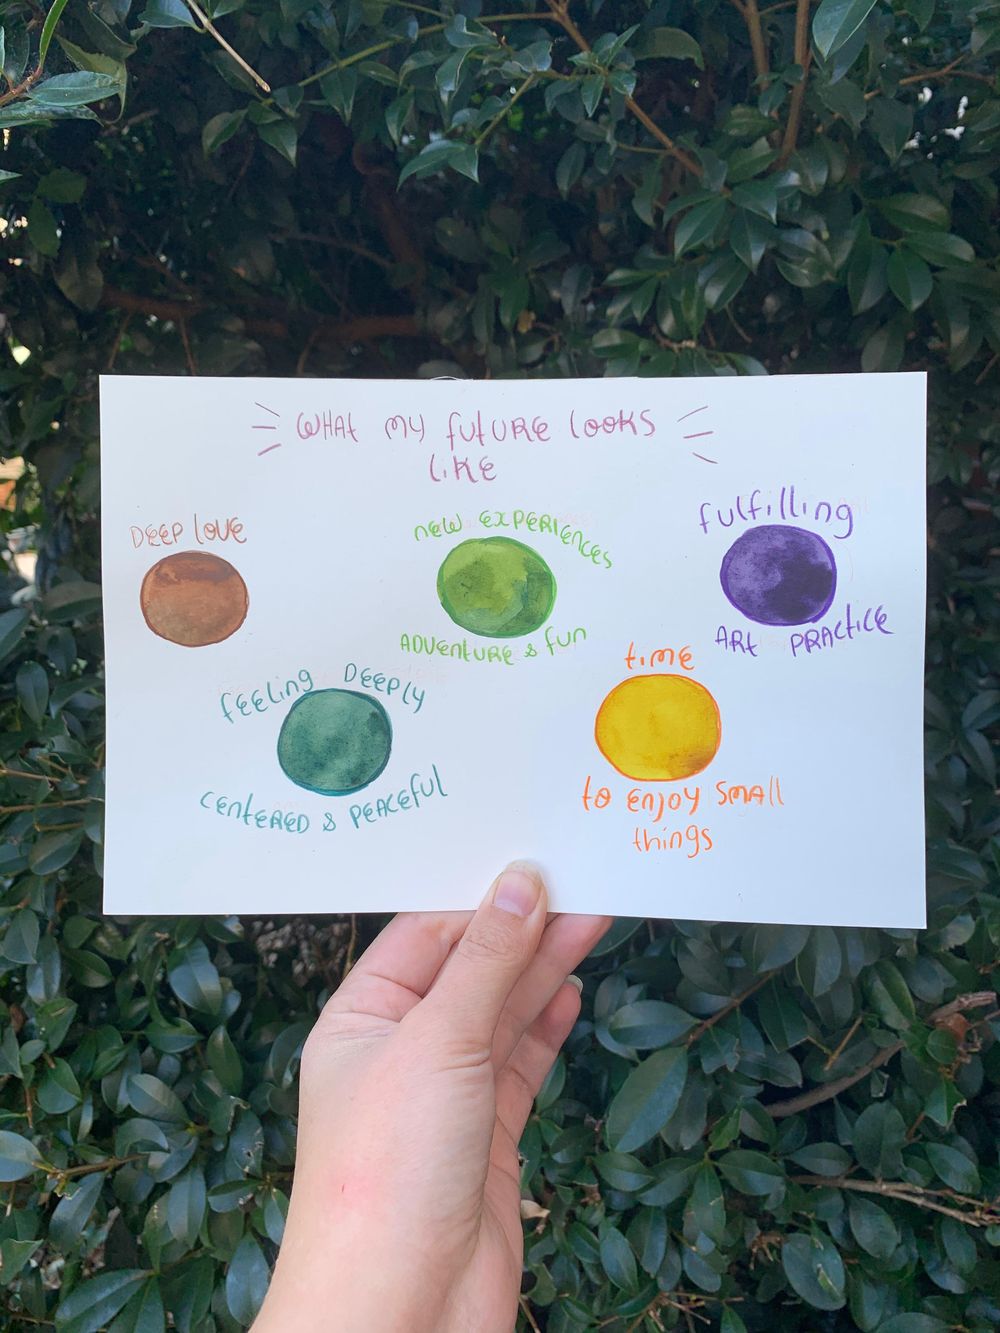 WHAT MY FUTURE LOOKS
LIKE
DEEP LOVE
NEW EXPERIENCES
ADVENTURE & FUN
fulfilling
ART PRACTICE
FEELING DEEPLY
CENTERED & PEACEFUL
time
to ENJOY SMALL
things